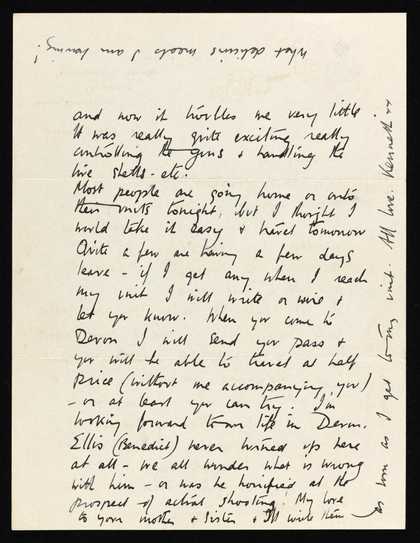 and now it troubles me very little
It was really quite exciting really
controlling the guns & handling the
live shells - etc.
Most people are going home or onto
their units tonight, but I thought I
would take it easy & travel tomorrow
Quite a few are having a few days
leave - if I get any when I reach
my unit I will write or wire &
let you know. When you come to
Devon I will send you pass &
you will be able to travel at half
price (without me accompanying you)
- or at least you can try. I'm
looking forward to our life in Devon.
Ellis (Benedict) never turned up here
at all - we all wonder what is wrong
with him - or was he horrified at the
prospect of actual shooting. My love
to your mother & sister & I'll write them
as soon as I get to my unit. All love. Kenneth xx
What delicious meals I am having!